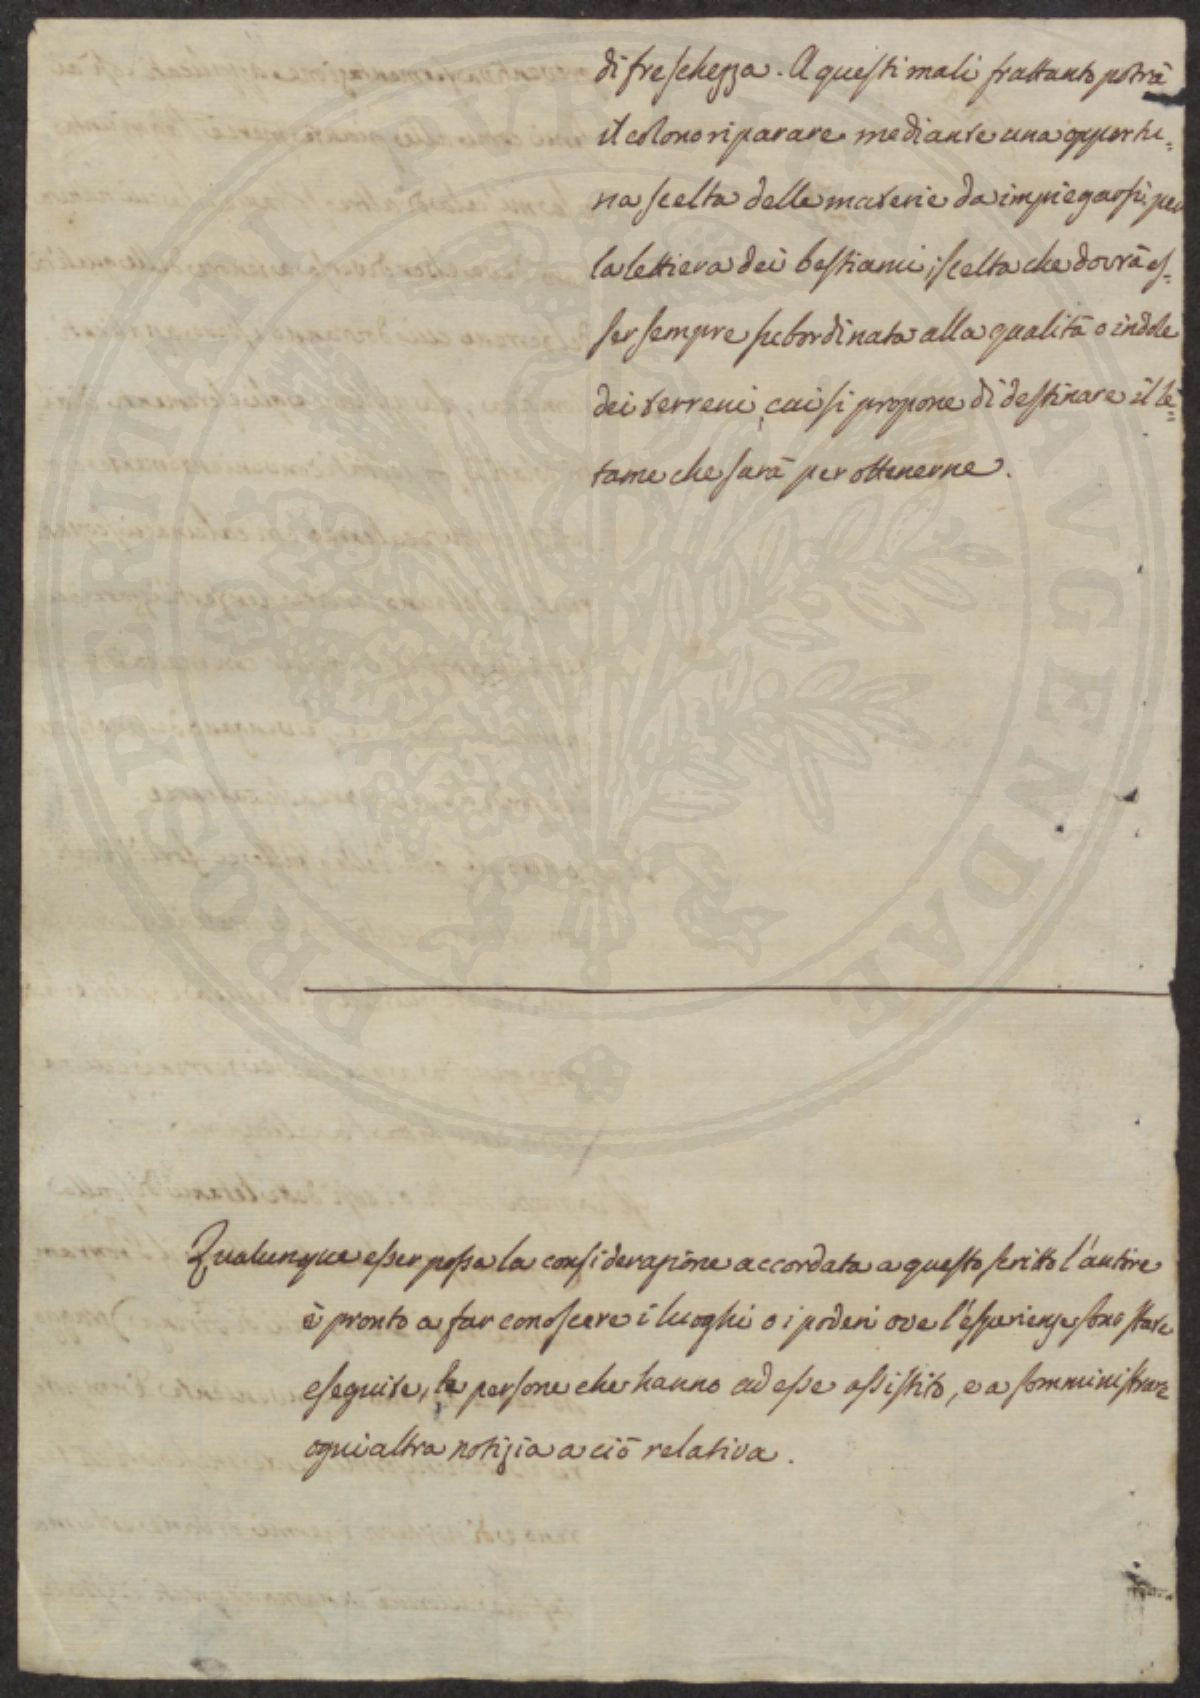 di freschezza. A questi mali frattanto potrà
il colono riparare mediante una opportu=
na scelta delle materie da impiegarsi per
la lettiera dei bestiami; scelta che dovrà es=
ser sempre subordinata alla qualità o indole
dei terreni, cui si propone di destinare il le=
tame che sarà per ottenerne.
Qualunque esser possa la considerazione accordata a questo scritto l'autore
è pronto a far conoscere i luoghi o i poderi ove l'esperienze sono state
eseguite, le persone che hanno ad esse assistito, e a somministrare
ogni altra notizia a ciò relativa.
PROSPERITATI PVBLICAE AVGENDAE